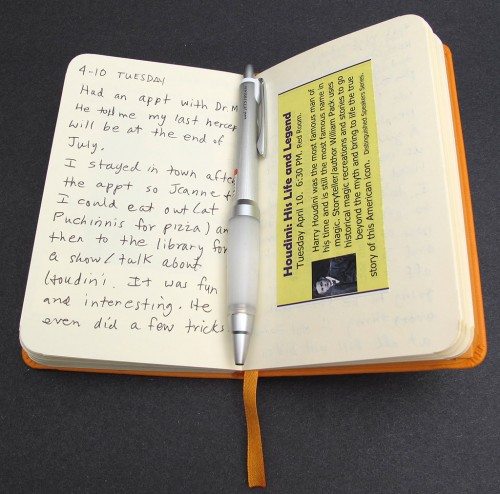 4-10 TUESDAY
Had an appt with Dr. M
He told me my last hercep
will be at the end of
July.
I stayed in town after
the appt so Jeanne &
I could eat out (at
Puchinnis for pizza) an
then to the library for
a show/talk about
Houdini. It was fun
and interesting. He
even did a few tricks.
Houdini: His Life and Legend
Tuesday April 10. 6:30 PM. Red Room.
Harry Houdini was the most famous man of
his time and is still the most famous name in
magic. Storyteller/author William Pack uses
historical magic recreations and stories to go
beyond the myth and bring to life the true
story of this American icon. Distinguished Speakers Series.